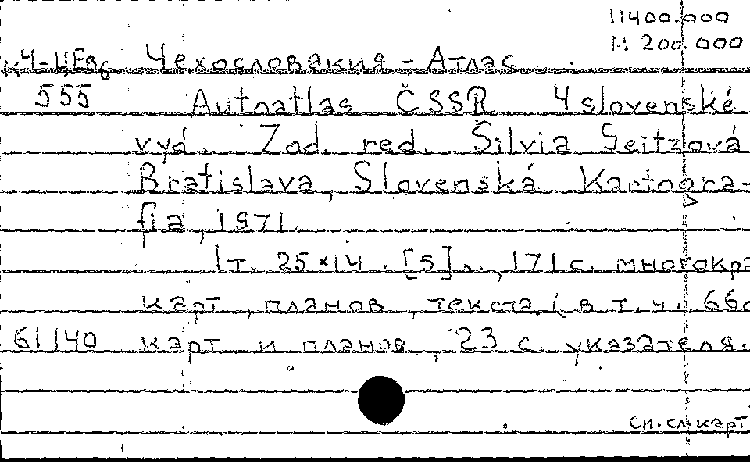 1:400.000
М 200.000
Чехословакия - Атлас
555 Autoatlas ČSSR 4 slovenské
vyd. Zod. red. Silvia Seitzová
Bratislava, Slovenská Kartogra-
fia, 1971.
1т. 25×14. [5], 171 с. многокра
карт, планов, текста (в т.ч. 66с
61140 карт и планов, 23 с. указателя.
См. сл. карт